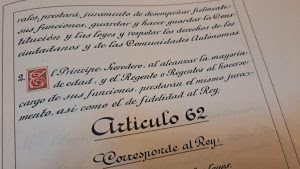 rales, prestará juramento de desempeñar fielmente
sus funciones, guardar y hacer guardar la Cons
titución y las leyes y respetar los derechos de los
ciudadanos y de las Comunidades Autónomas.
2. El Príncipe Heredero, al alcanzar la mayoría
de edad, y el Regente o Regentes al hacerse
cargo de sus funciones, prestarán el mismo jura-
mento, así como el de fidelidad al Rey.
Artículo 62
Corresponde al Rey:
leyes.